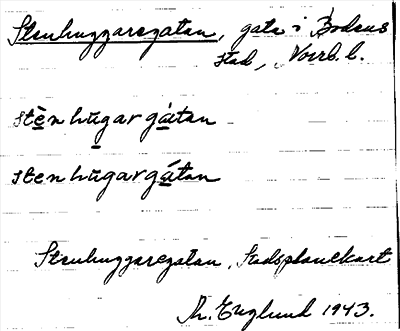 Stenhuggaregatan, gata i Bodens
stad, Norrb. l.
stènhu̱gargá̱tan
stenhūgargá̱tan
Stenhuggaregatan, Stadsplanekart
Th. Englund 1943.